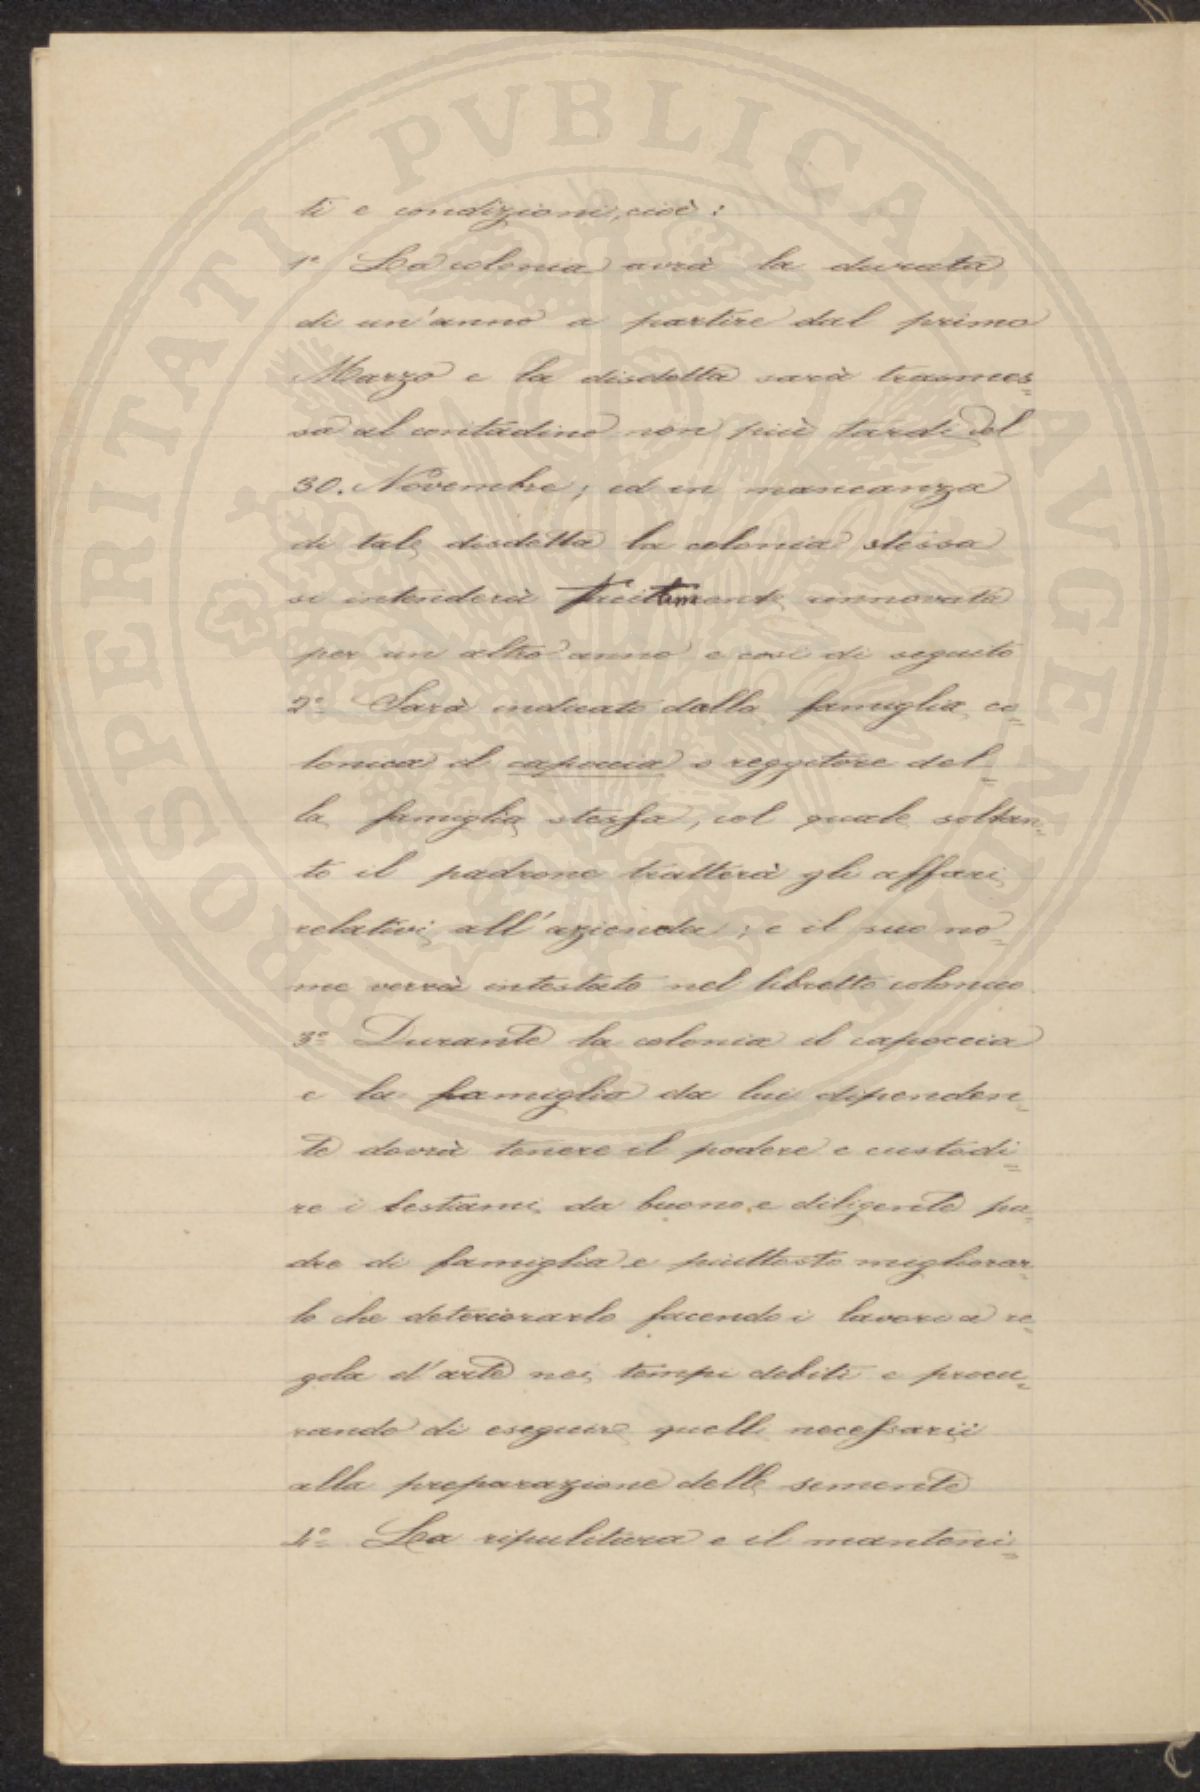 ti e condizioni, cioè:
1º La colonia avrà la durata
di un'anno a partire dal primo
Marzo e la disdetta sarà trasmes=
sa al contadino non più tardi del
30. Novembre; ed in mancanza
di tale disdetta la colonia stessa
si intenderà tacitamente rinnovata
per un altro anno e così di seguito
2º Sarà indicato dalla famiglia co=
lonica il capoccia o reggitore del=
la famiglia stessa, col quale soltan=
to il padrone tratterà gli affari
relativi all'azienda; e il suo no=
me verrà intestato nel libretto colonico.
3º Durante la colonia il capoccia
e la famiglia da lui dipenden=
te dovrà tenere il podere e custodi=
re i bestiami da buono e diligente pa=
dre di famiglia e piuttosto migliorar=
lo che deteriorarlo facendo i lavori a re=
gola d'arte nei tempi debiti e procu=
rando di eseguire quelli necessarii
alla preparazione delle semente
4º La ripulitura e il manteni=
PROSPERITATI PVBLICAE AVGENDAE